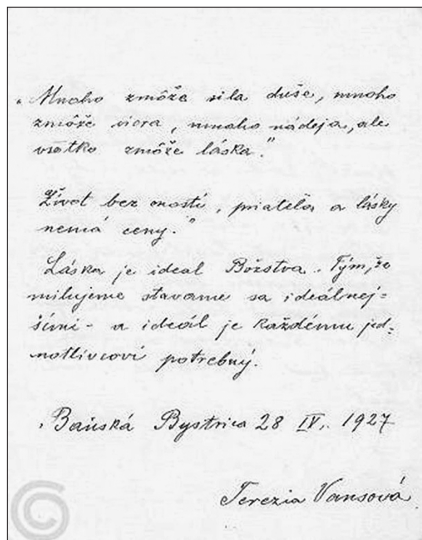 „Mnoho zmôže sila duše, mnoho
zmôže viera, mnoho nádeja, ale
všetko zmôže láska."
Život bez cností, priateľa a lásky
nemá ceny."
Láska je ideal Božstva. Tým, že
milujeme stavame sa ideálnej=
šími – a ideál je každému jed-
notlivcovi potrebný.
Banská Bystrica 28 IV. 1927
Terezia Vansová
©